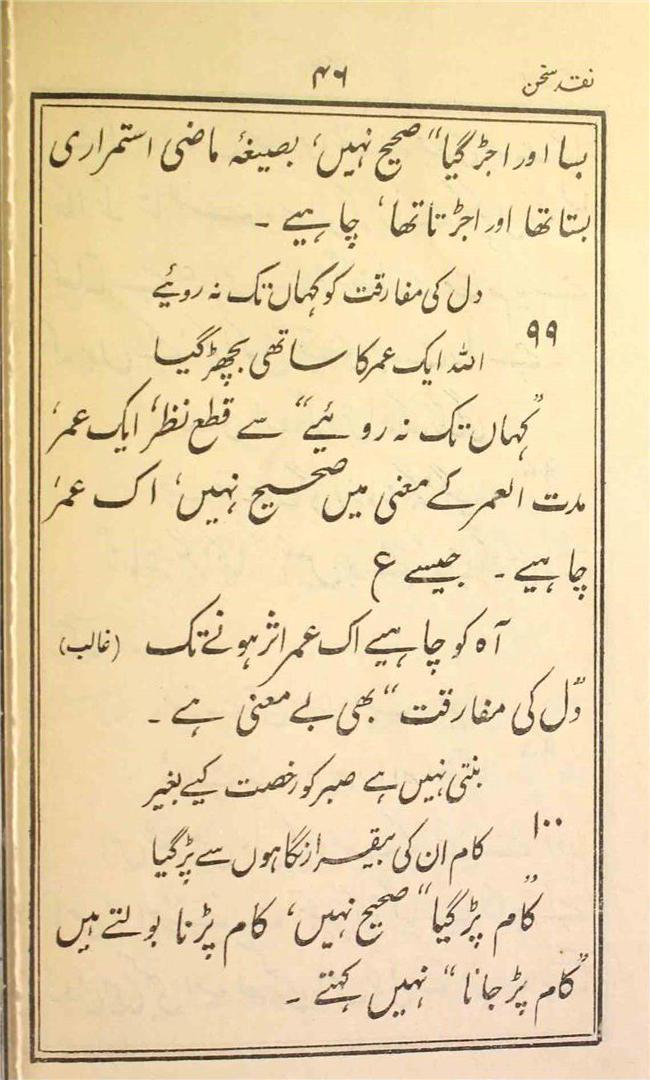 نقد سخن
۴۶
بسا اور اجڑ گیا“ صحیح نہیں، بصیغۂ ماضی استمراری
بستا تھا اور اجڑتا تھا، چاہیے ۔
دل کی مفارقت کو کہاں تک نہ روئیے
۹۹
اللہ ایک عمر کا ساتھی بچھڑ گیا
”کہاں تک نہ روئیے“ سے قطع نظر، ایک عمر،
مدت العمر کے معنی میں صحیح نہیں، اک عمر،
چاہیے ۔ جیسے ع
آہ کو چاہیے اک عمر اثر ہونے تک (غالب)
”دل کی مفارقت“ بھی بے معنی ہے ۔
بنتی نہیں ہے صبر کو رخصت کیے بغیر
۱۰۰
کام ان کی بیقرار نگاہوں سے پڑ گیا
”کام پڑ گیا“ صحیح نہیں، کام پڑنا بولتے ہیں
”کام پڑ جانا“ نہیں کہتے ۔